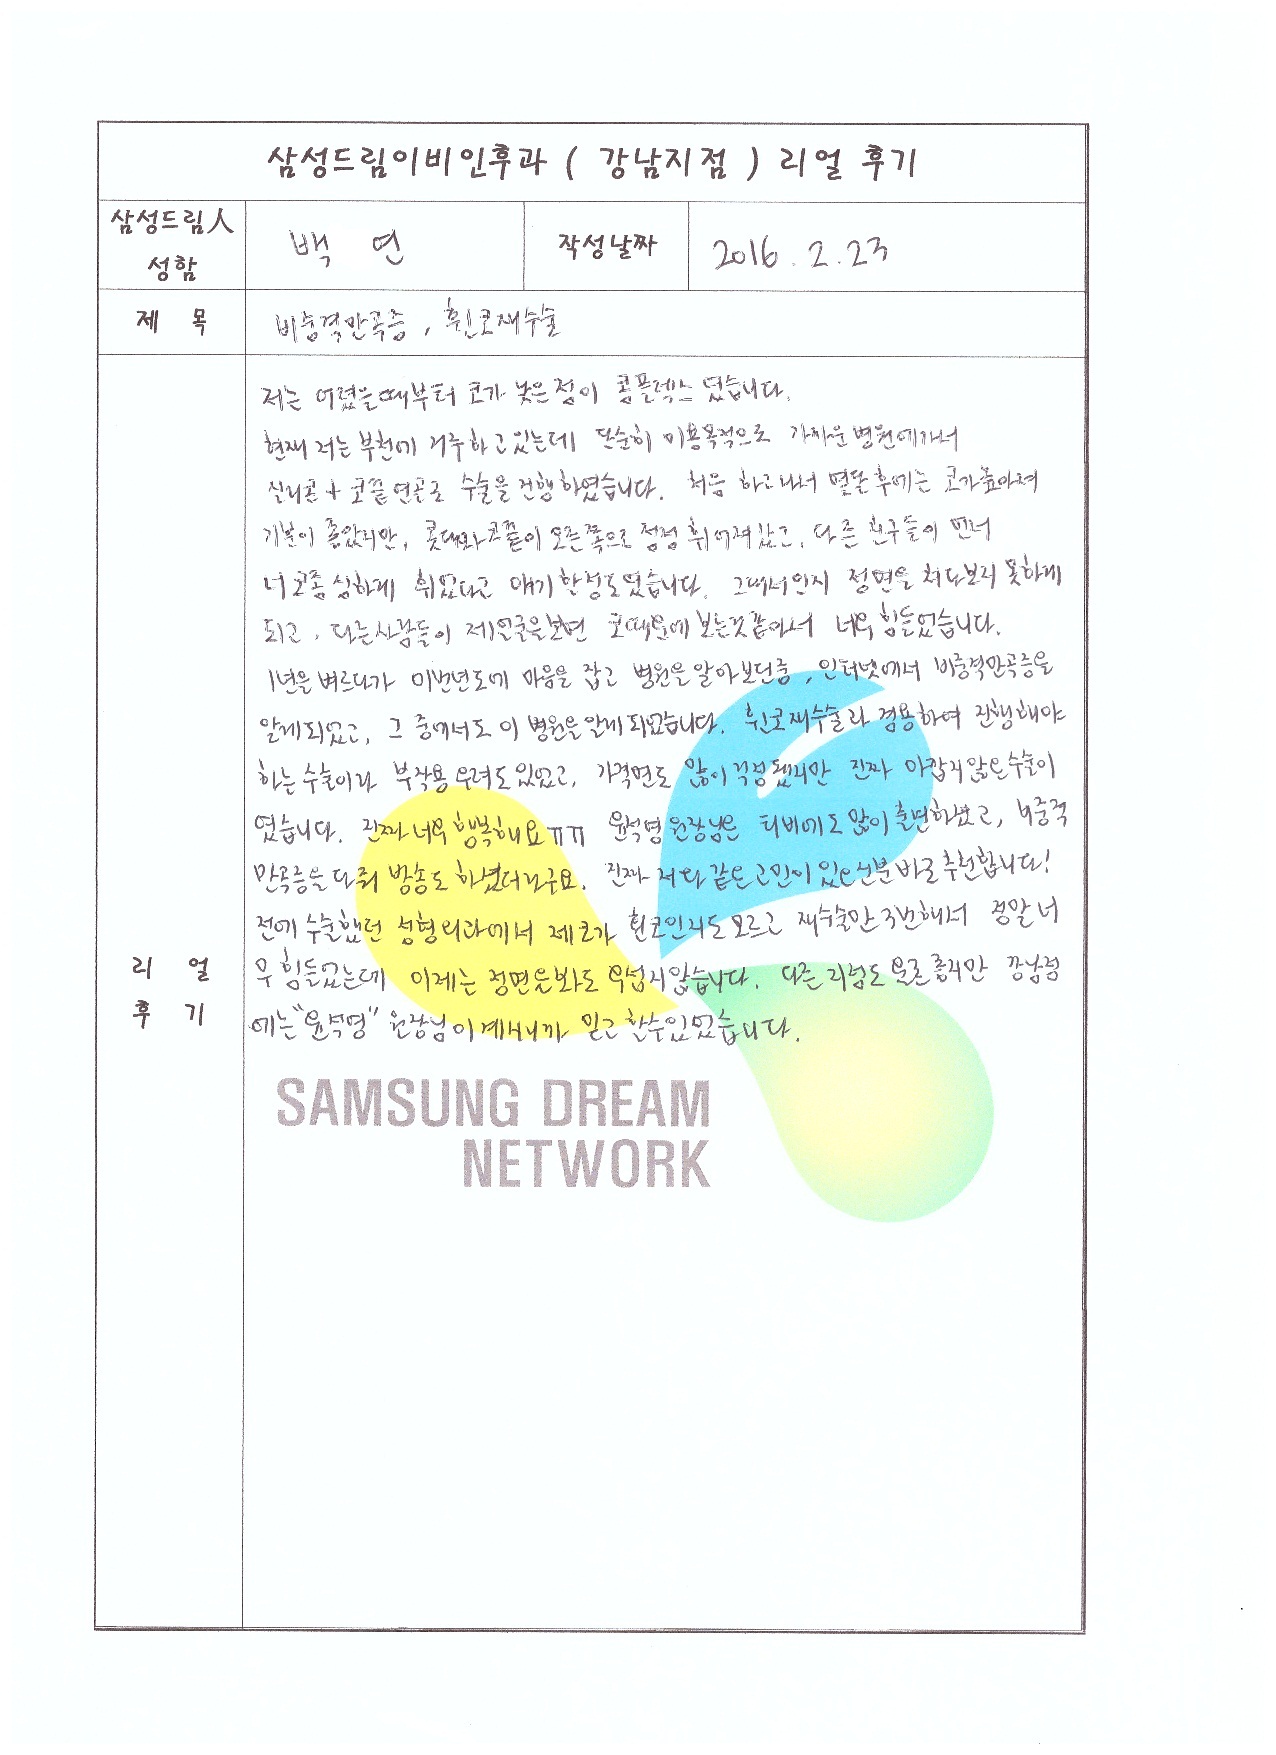 삼성드림이비인후과 ( 강남지점 ) 리얼 후기
삼성드림人 성함
백 연
작성날짜
2016. 2. 23
제 목
비중격만곡증, 휜코재수술
리 얼 후 기
저는 어렸을때부터 코가 낮은점이 콤플렉스 였습니다.
현재 저는 부천에 거주하고있는데 단순히 미용목적으로 가까운병원에가서
실리콘 + 코끝연골로 수술을 진행하였습니다. 처음 하고나서 몇달후에는 코가높아져
기분이 좋았지만, 콧대와코끝이 오른쪽으로 점점 휘어져갔고, 다른 친구들이 먼저
너 코좀 심하게 휘었다고 얘기할정도였습니다. 그때서인지 정면을 쳐다보지 못하게
되고, 다른사람들이 제얼굴을보면 코때문에 보는것같아서 너무 힘들었습니다.
1년을 벼르다가 이번년도에 마음을 잡고 병원을알아보던중, 인터넷에서 비중격만곡증을
알게되었고, 그 중에서도 이 병원을알게되었습니다. 휜코재수술과 겸용하여 진행해야
하는 수술이라 부작용 우려도있었고, 가격면도 많이걱정됐지만 진짜 아깝지않은수술이
였습니다. 진짜 너무행복해요ㅠㅠ 윤석영원장님은 티비에도많이출연하셨고, 비중격
만곡증을다뤄 방송도 하셨더라구요. 진짜 저와 같은고민이있으신분바로추천합니다!
전에 수술했던 성형외과에서 제코가 휜코인지도모르고 재수술만3번해서 정말 너
무 힘들었는데 이제는 정면을봐도 무섭지않습니다. 다른지점도 물론좋지만 강남점
에는 "윤석영" 원장님이계시니까 믿고 할수있었습니다.
SAMSUNG DREAM
NETWORK